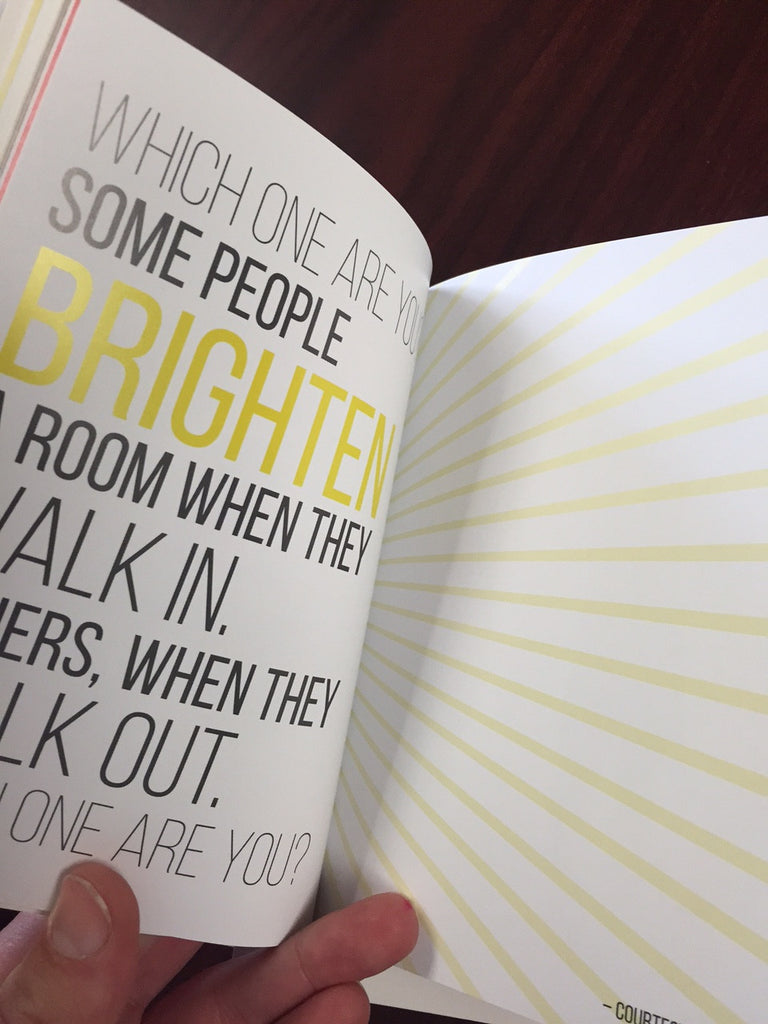 WHICH ONE ARE YOU
SOME PEOPLE
BRIGHTEN
A ROOM WHEN THEY
WALK IN.
HERS, WHEN THEY
LK OUT.
ONE ARE YOU?
– COURTES